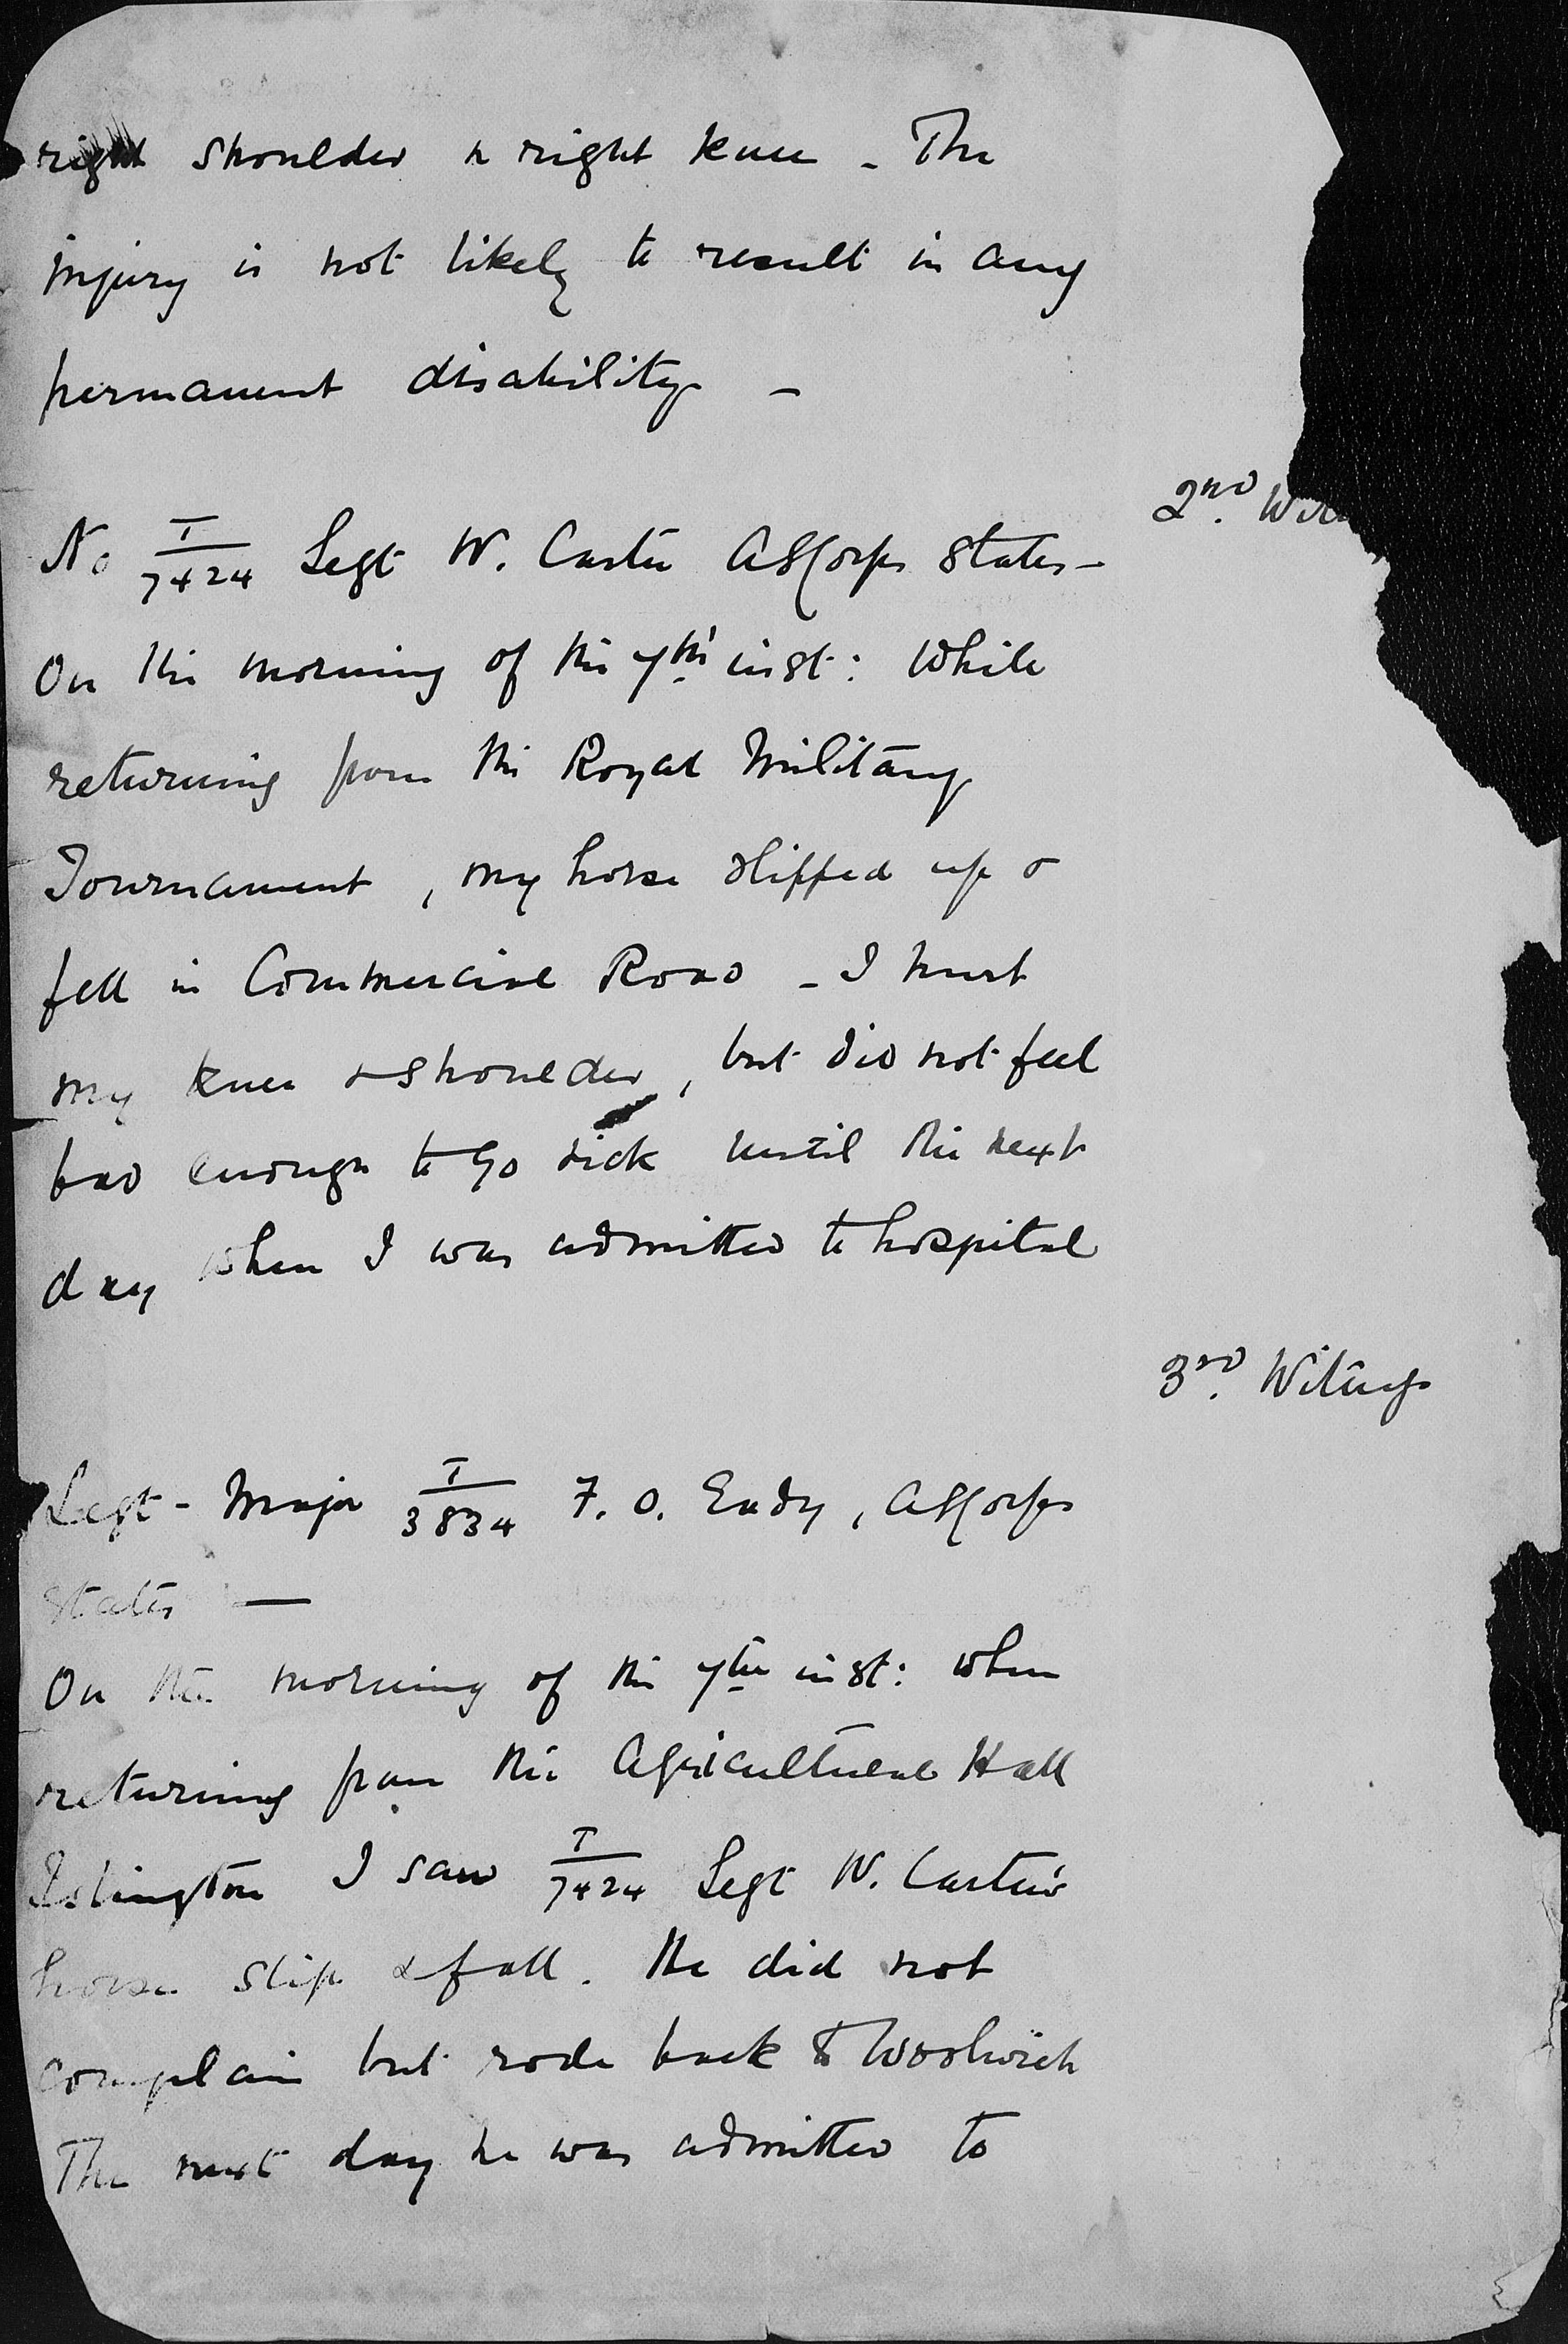 right shoulder & right knee - The
injury is not likely to result in any
permanent disability -
2nd. Wit
No T/7424 Sergt W. Carter ASCorps states -
On the morning of the 7th inst: while
returning from the Royal Military
Tournament, my horse slipped up &
fell in Commercial Road - I hurt
my knee & shoulder, but did not feel
bad enough to go sick until the next
day when I was admitted to hospital
3rd. Witness
Sergt-Major T/3834 F. O. Eady, ASCorps
states —
On the morning of the 7th inst: when
returning from the Agricultural Hall
Islington I saw T/7424 Sergt W. Carter's
horse slip & fall. He did not
complain but rode back to Woolwich
The next day he was admitted to